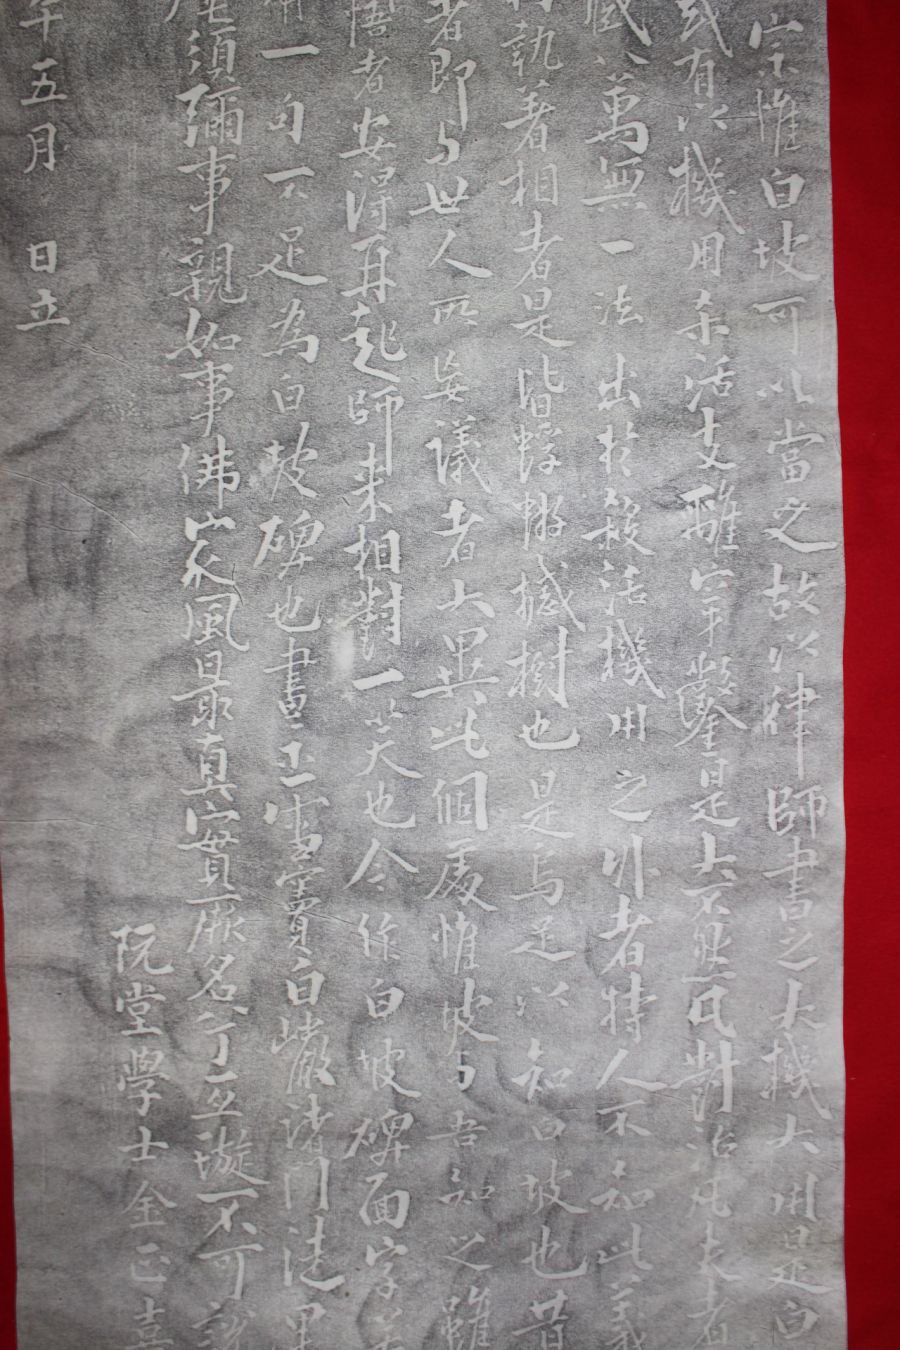 宗惟白坡可以當之故以律師書之大機大用是白
或有以機用杀活支離穿鑿是大不然凡對治凡夫者
藏八萬無一法出於殺活機用之外者特人不知此義
拘執著相者是皆蜉蝣撼樹也是烏足以知白坡也昔
者即与世人所妄議者大異此個處惟坡与吾知之雖
悟者安得再起師來相對一笑也今作白坡碑面字若
用一句不足為白坡碑也書示雪竇白巖諸門徒果
壓須彌事親如事佛家風最真實厥名兮亙璇不可說
阮堂學士金正喜
午五月 日立